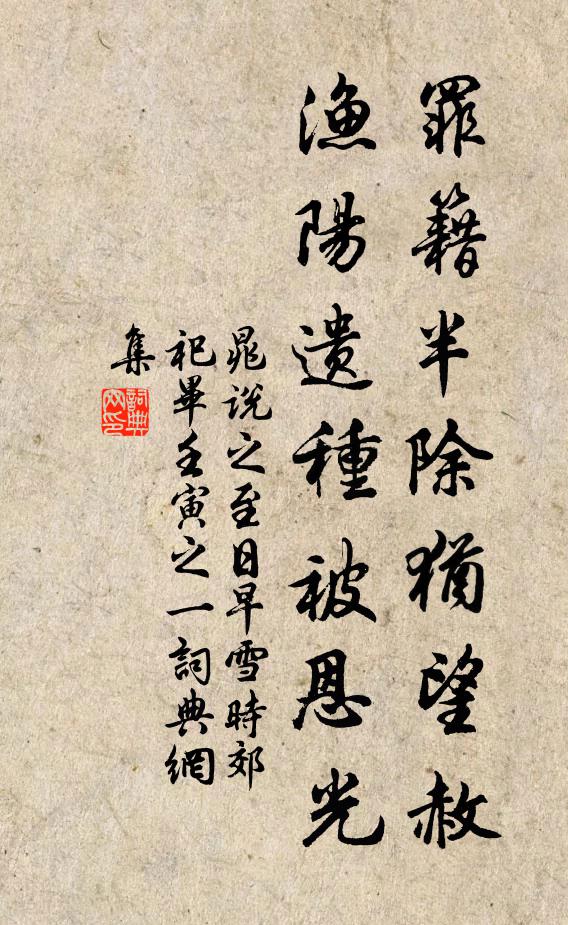 罪籍半除猶望赦
漁陽遺種被恩光
晁說之至日早雪時郊
祀畢壬寅之一詞典網
集
詞典
网印